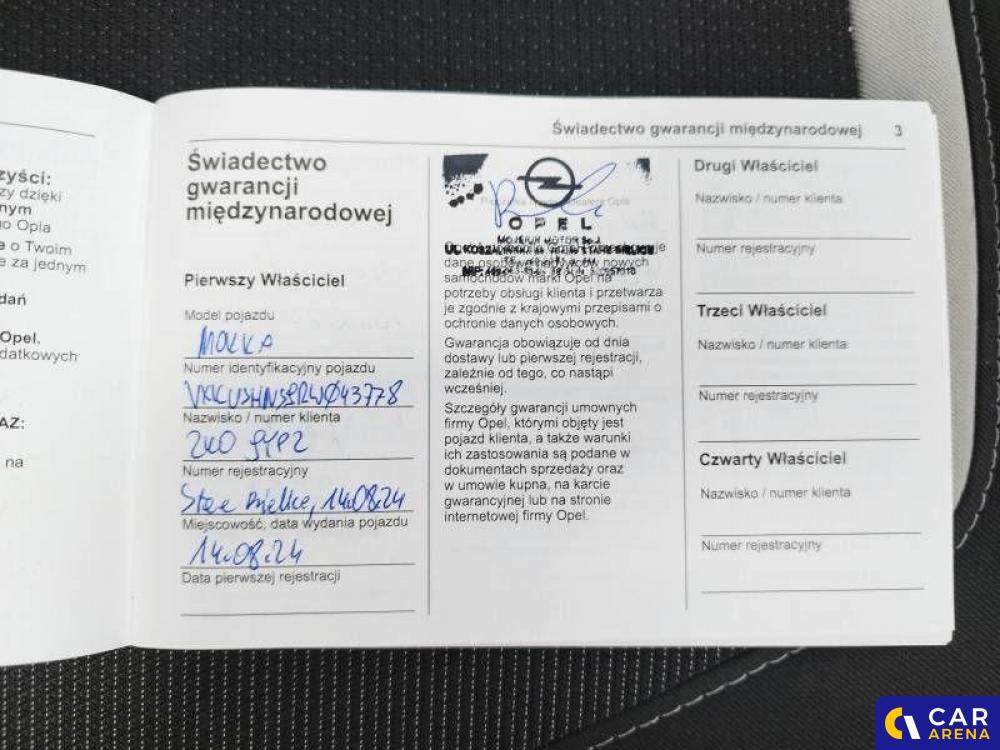 zyści:
zy dzięki
nym
o Opla
e o Twoim
e za jednym
dań
Opel.
datkowych
AZ:
na
Świadectwo gwarancji międzynarodowej 3
Świadectwo
gwarancji
międzynarodowej
Pierwszy Właściciel
Model pojazdu
MOKKA
Numer identyfikacyjny pojazdu
Nazwisko / numer klienta
Numer rejestracyjny
14.08.24
Miejscowość, data wydania pojazdu
14.08.24
Data pierwszej rejestracji
OPEL
dane osobowe
nowych
samochodów marki Opel na
potrzeby obsługi klienta i przetwarza
je zgodnie z krajowymi przepisami o
ochronie danych osobowych.
Gwarancja obowiązuje od dnia
dostawy lub pierwszej rejestracji,
zależnie od tego, co nastąpi
wcześniej.
Szczegóły gwarancji umownych
firmy Opel, którymi objęty jest
pojazd klienta, a także warunki
ich zastosowania są podane w
dokumentach sprzedaży oraz
w umowie kupna, na karcie
gwarancyjnej lub na stronie
internetowej firmy Opel.
Drugi Właściciel
Nazwisko / numer klienta
Numer rejestracyjny
Trzeci Właściciel
Nazwisko / numer klienta
Numer rejestracyjny
Czwarty Właściciel
Nazwisko / numer klienta
Numer rejestracyjny
CAR
ARENA